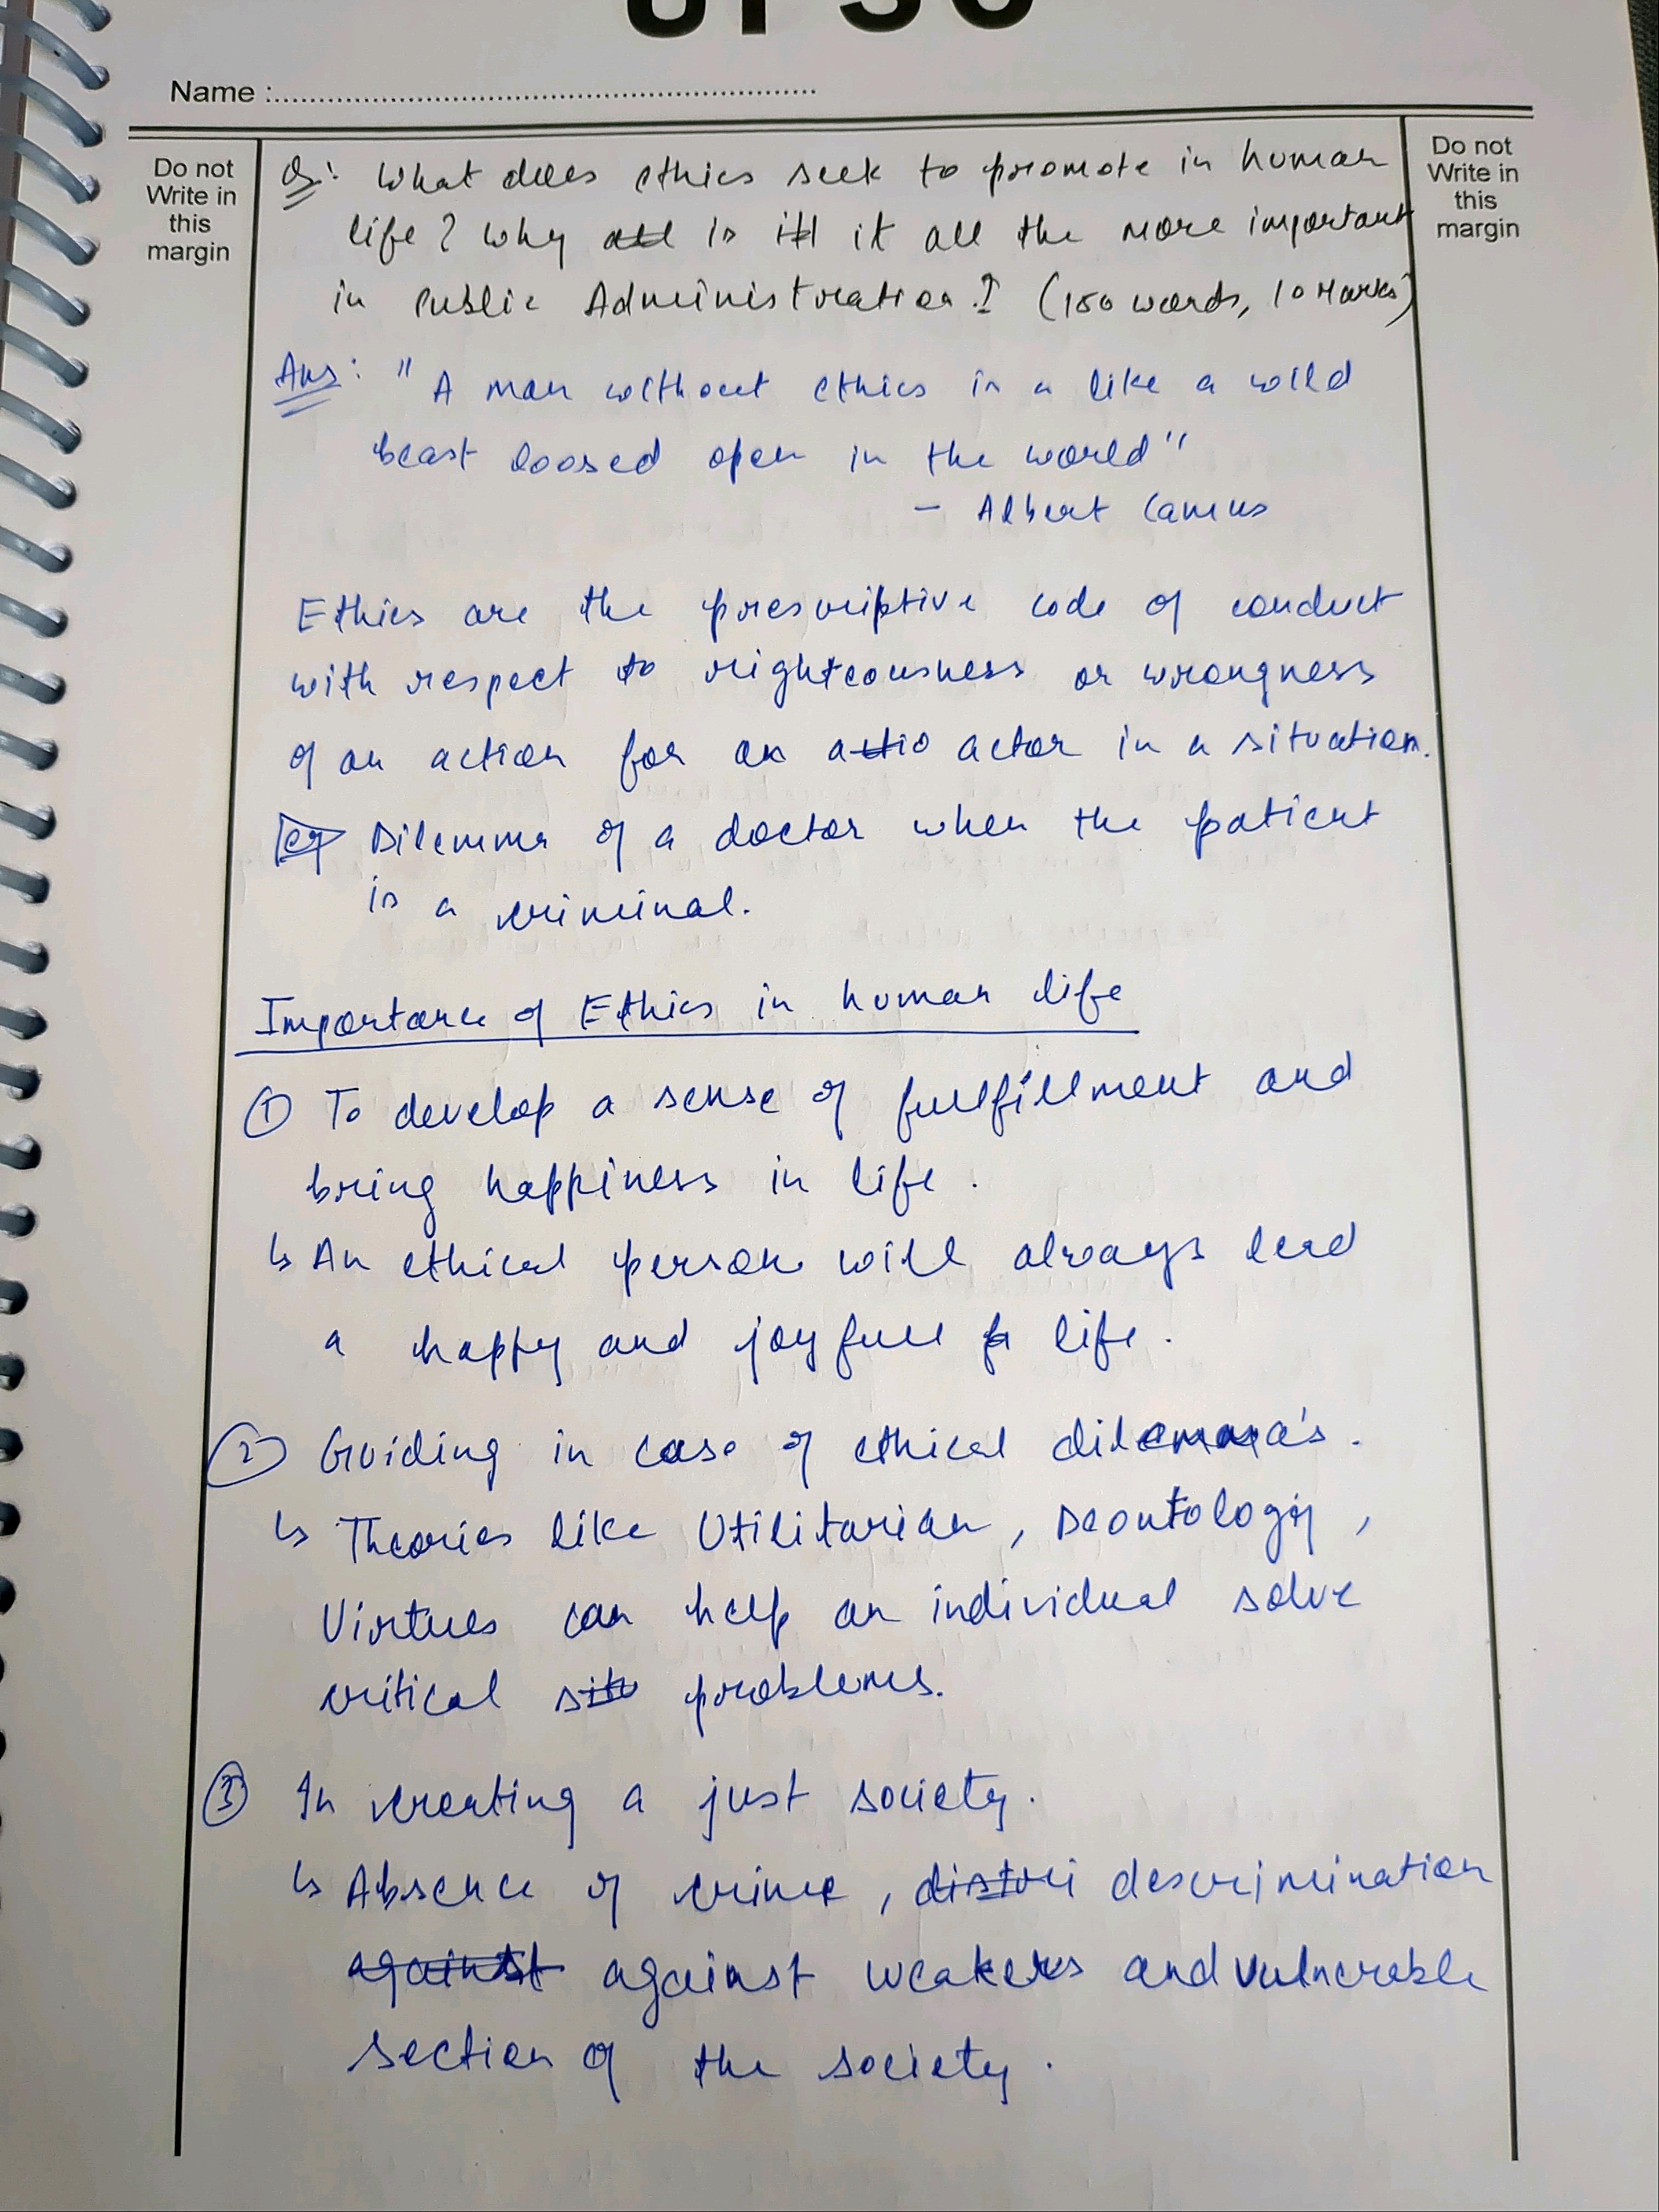 UPSC
Name :
Do not
Write in
this
margin
Do not
Write in
this
margin
Q: What does ethics seek to promote in human
life? Why all is it it all the more important
in Public Administration? (150 words, 10 Marks)
Ans: "A man without ethics is a like a wild
beast loosed open in the world"
- Albert Camus
Ethics are the prescriptive code of conduct
with respect to righteousness or wrongness
of an action for an actio actor in a situation.
eg Dilemma of a doctor when the patient
is a criminal.
Importance of Ethics in human life
① To develop a sense of fullfillment and
bring happiness in life.
↳ An ethical person will always lead
a happy and joyfull life.
② Guiding in case of ethical dilemma's.
↳ Theories like Utilitarian, Deontology,
Virtues can help an individual solve
critical situ problems.
③ In creating a just society.
↳ Absence of crime, distri descrimination
against against weakers and vulnerable
section of the society.